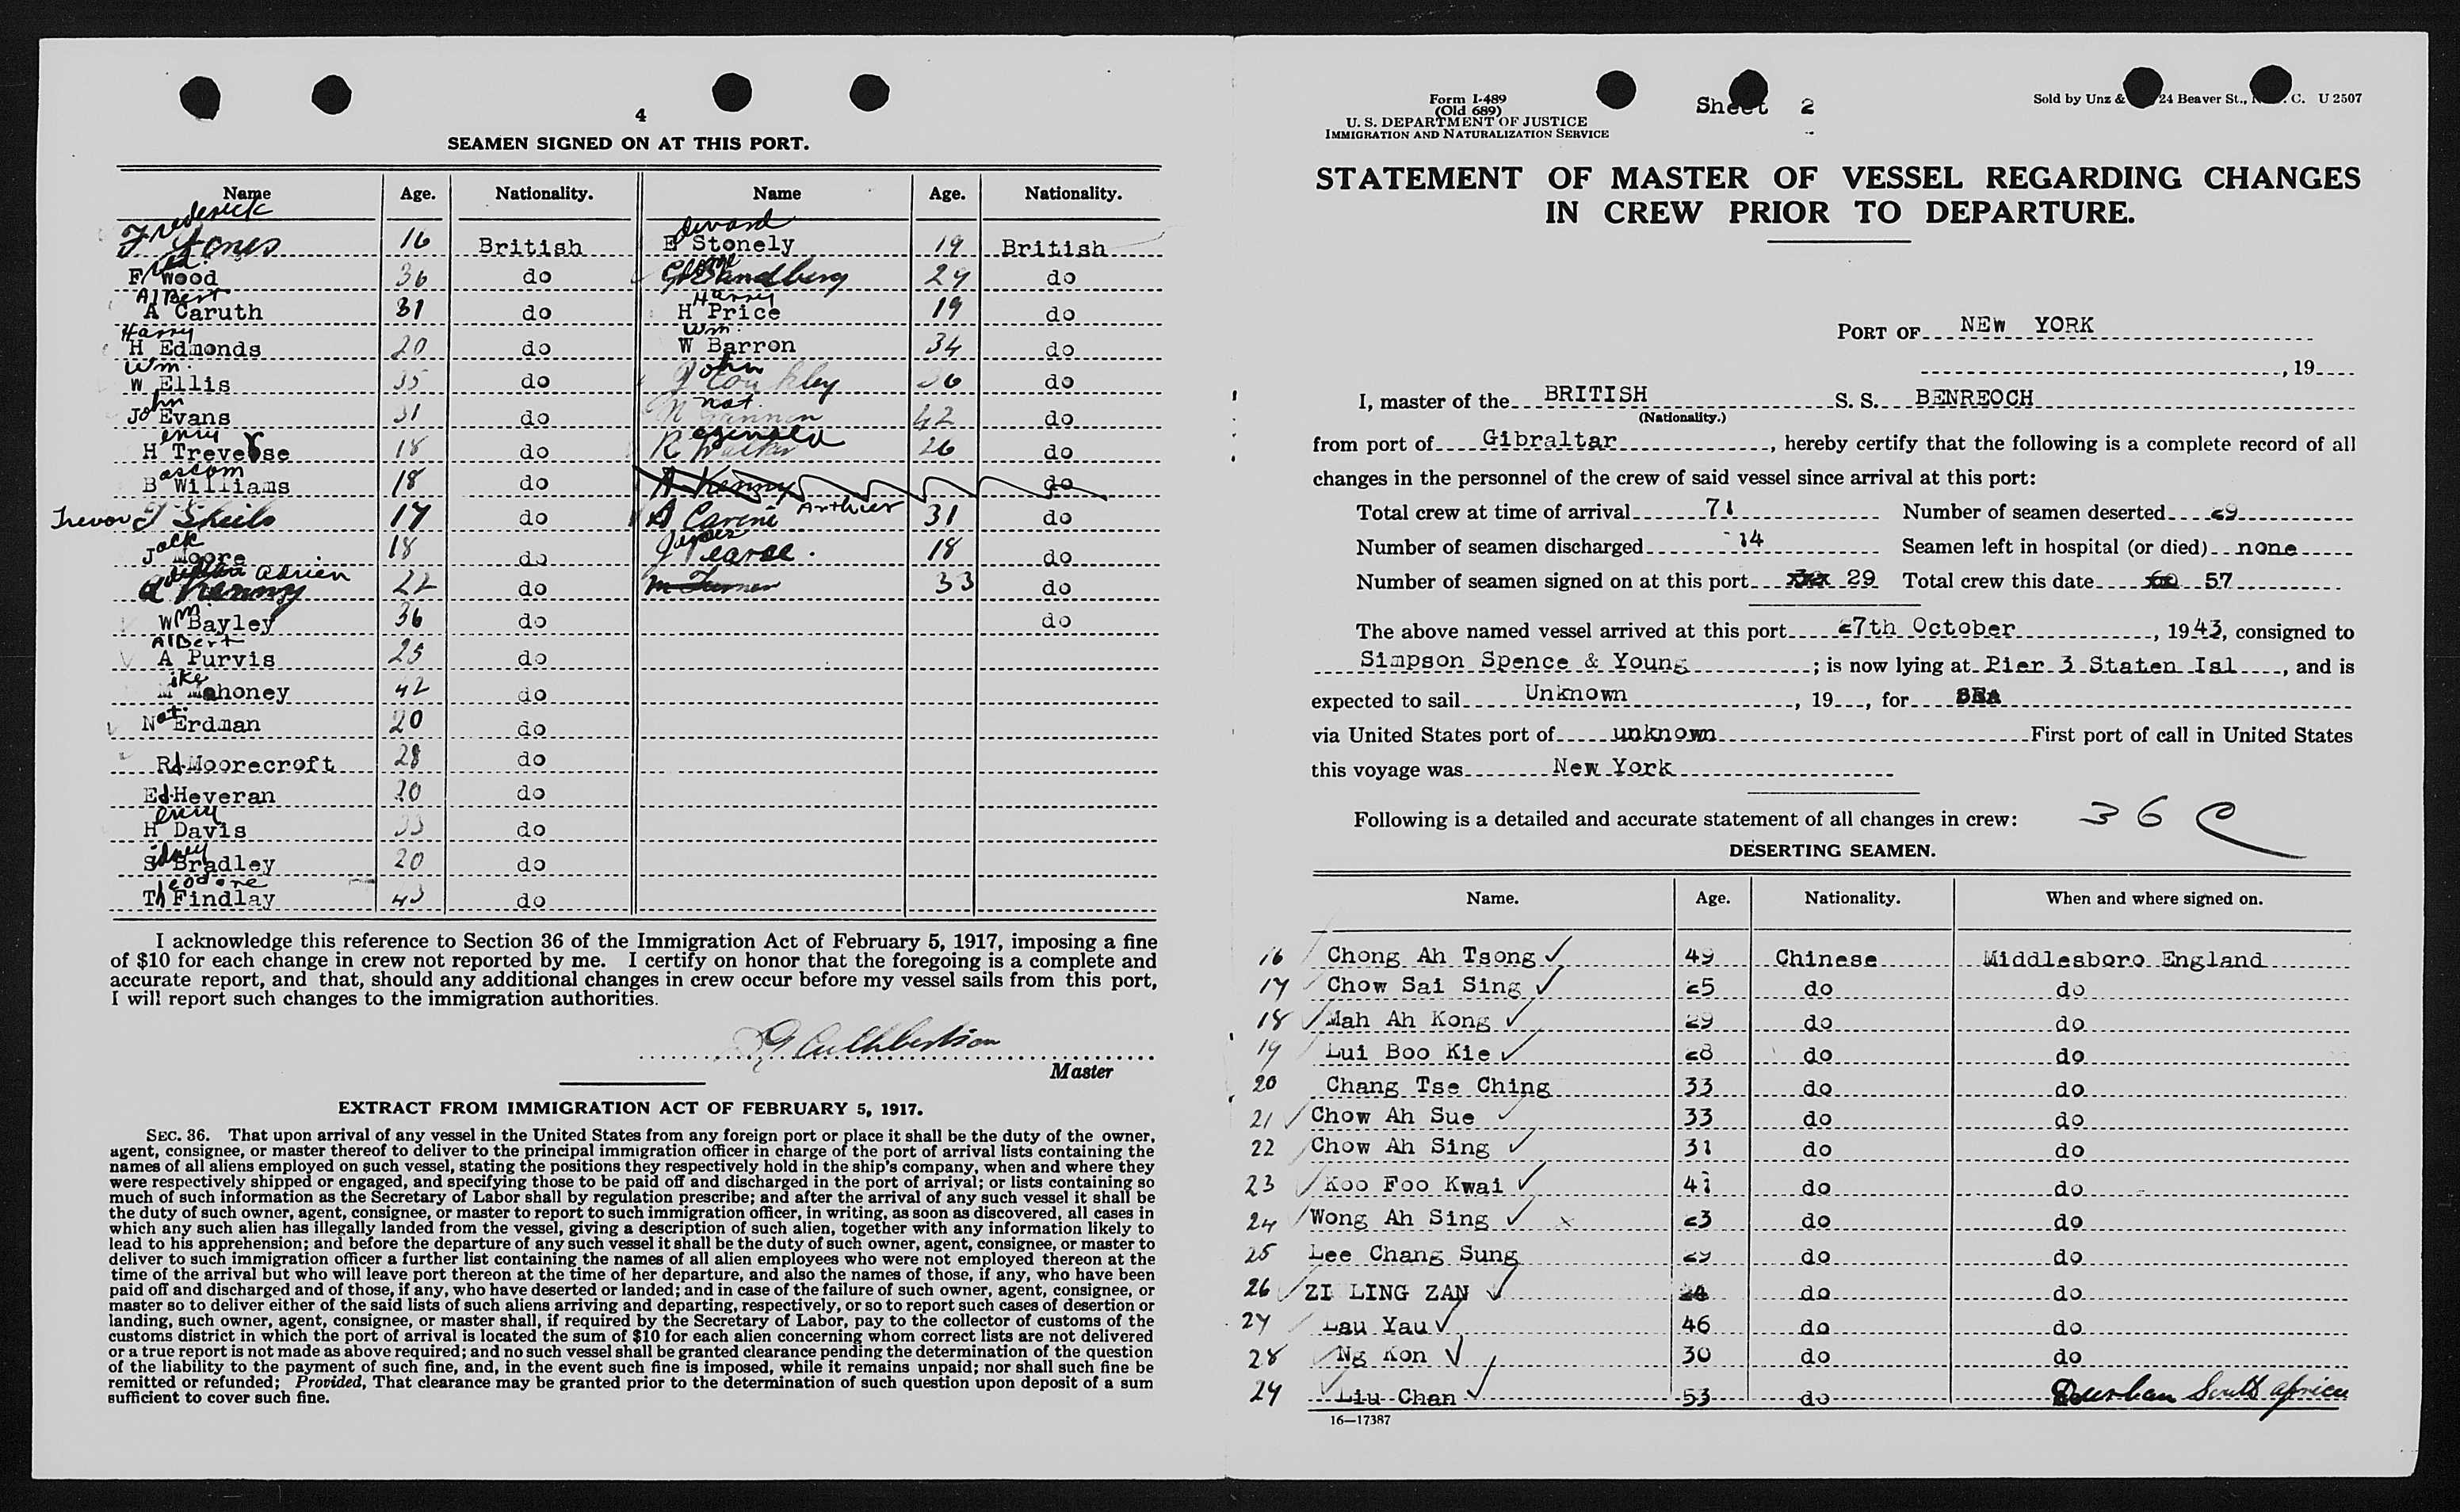 4
SEAMEN SIGNED ON AT THIS PORT.
Name Age. Nationality. Name Age. Nationality.
Frederick Edward
F Jones 16 British E Stonely 19 British
Fred. Wood 36 do Sandberg 29 do
Albert Harry
A Caruth 31 do H Price 19 do
Harry Wm.
H Edmonds 20 do W Barron 34 do
Wm. John
W Ellis 35 do J 36 do
John Nat.
Jo Evans 31 do N Gannon 42 do
Henry Reginald
H Treverse 18 do R Walker 26 do
Bascom
B Williams 18 do A Kenny do
Trevor T Sheils 17 do A Carine Arthur 31 do
Jack James
J Moore 18 do J Pearce. 18 do
Adrien
A Kenny 22 do M Turner 33 do
Wm Bayley 36 do do
Albert
A Purvis 25 do
Mike
M Mahoney 42 do
Nat. Erdman 20 do
Rd Moorecroft 28 do
Ed. Heveran 20 do
Henry
H Davis 33 do
Sidney
S Bradley 20 do
Theodore
Th Findlay 43 do
I acknowledge this reference to Section 36 of the Immigration Act of February 5, 1917, imposing a fine
of $10 for each change in crew not reported by me. I certify on honor that the foregoing is a complete and
accurate report, and that, should any additional changes in crew occur before my vessel sails from this port,
I will report such changes to the immigration authorities.
Cuthbertson
Master
EXTRACT FROM IMMIGRATION ACT OF FEBRUARY 5, 1917.
SEC. 36. That upon arrival of any vessel in the United States from any foreign port or place it shall be the duty of the owner,
agent, consignee, or master thereof to deliver to the principal immigration officer in charge of the port of arrival lists containing the
names of all aliens employed on such vessel, stating the positions they respectively hold in the ship's company, when and where they
were respectively shipped or engaged, and specifying those to be paid off and discharged in the port of arrival; or lists containing so
much of such information as the Secretary of Labor shall by regulation prescribe; and after the arrival of any such vessel it shall be
the duty of such owner, agent, consignee, or master to report to such immigration officer, in writing, as soon as discovered, all cases in
which any such alien has illegally landed from the vessel, giving a description of such alien, together with any information likely to
lead to his apprehension; and before the departure of any such vessel it shall be the duty of such owner, agent, consignee, or master to
deliver to such immigration officer a further list containing the names of all alien employees who were not employed thereon at the
time of the arrival but who will leave port thereon at the time of her departure, and also the names of those, if any, who have been
paid off and discharged and of those, if any, who have deserted or landed; and in case of the failure of such owner, agent, consignee, or
master so to deliver either of the said lists of such aliens arriving and departing, respectively, or so to report such cases of desertion or
landing, such owner, agent, consignee, or master shall, if required by the Secretary of Labor, pay to the collector of customs of the
customs district in which the port of arrival is located the sum of $10 for each alien concerning whom correct lists are not delivered
or a true report is not made as above required; and no such vessel shall be granted clearance pending the determination of the question
of the liability to the payment of such fine, and, in the event such fine is imposed, while it remains unpaid; nor shall such fine be
remitted or refunded; Provided, That clearance may be granted prior to the determination of such question upon deposit of a sum
sufficient to cover such fine.
Form I-489
(Old 689)
U. S. DEPARTMENT OF JUSTICE
IMMIGRATION AND NATURALIZATION SERVICE
Sheet 2
Sold by Unz & 24 Beaver St., N. C. U 2507
STATEMENT OF MASTER OF VESSEL REGARDING CHANGES
IN CREW PRIOR TO DEPARTURE.
PORT OF NEW YORK
, 19
I, master of the BRITISH S. S. BENREOCH
(Nationality.)
from port of Gibraltar, hereby certify that the following is a complete record of all
changes in the personnel of the crew of said vessel since arrival at this port:
Total crew at time of arrival 71 Number of seamen deserted 29
Number of seamen discharged 14 Seamen left in hospital (or died) none
Number of seamen signed on at this port 29 Total crew this date 57
The above named vessel arrived at this port 27th October, 1943, consigned to
Simpson Spence & Young; is now lying at Pier 3 Staten Isl, and is
expected to sail Unknown, 19, for SEA
via United States port of unknown First port of call in United States
this voyage was New York
Following is a detailed and accurate statement of all changes in crew: 36 C
DESERTING SEAMEN.
Name. Age. Nationality. When and where signed on.
16 Chong Ah Tsong ✓ 49 Chinese Middlesboro England
17 Chow Sai Sing ✓ 25 do do
18 Mah Ah Kong ✓ 29 do do
19 Lui Boo Kie ✓ 28 do do
20 Chang Tse Ching 33 do do
21 Chow Ah Sue ✓ 33 do do
22 Chow Ah Sing ✓ 31 do do
23 Koo Foo Kwai ✓ 41 do do
24 Wong Ah Sing ✓ x 23 do do
25 Lee Chang Sung 29 do do
26 ZI LING ZAN ✓ do do
27 Lau Yau ✓ 46 do do
28 Ng Kon ✓ 30 do do
29 Liu Chan ✓ 53 do Durban South Africa
16—17387